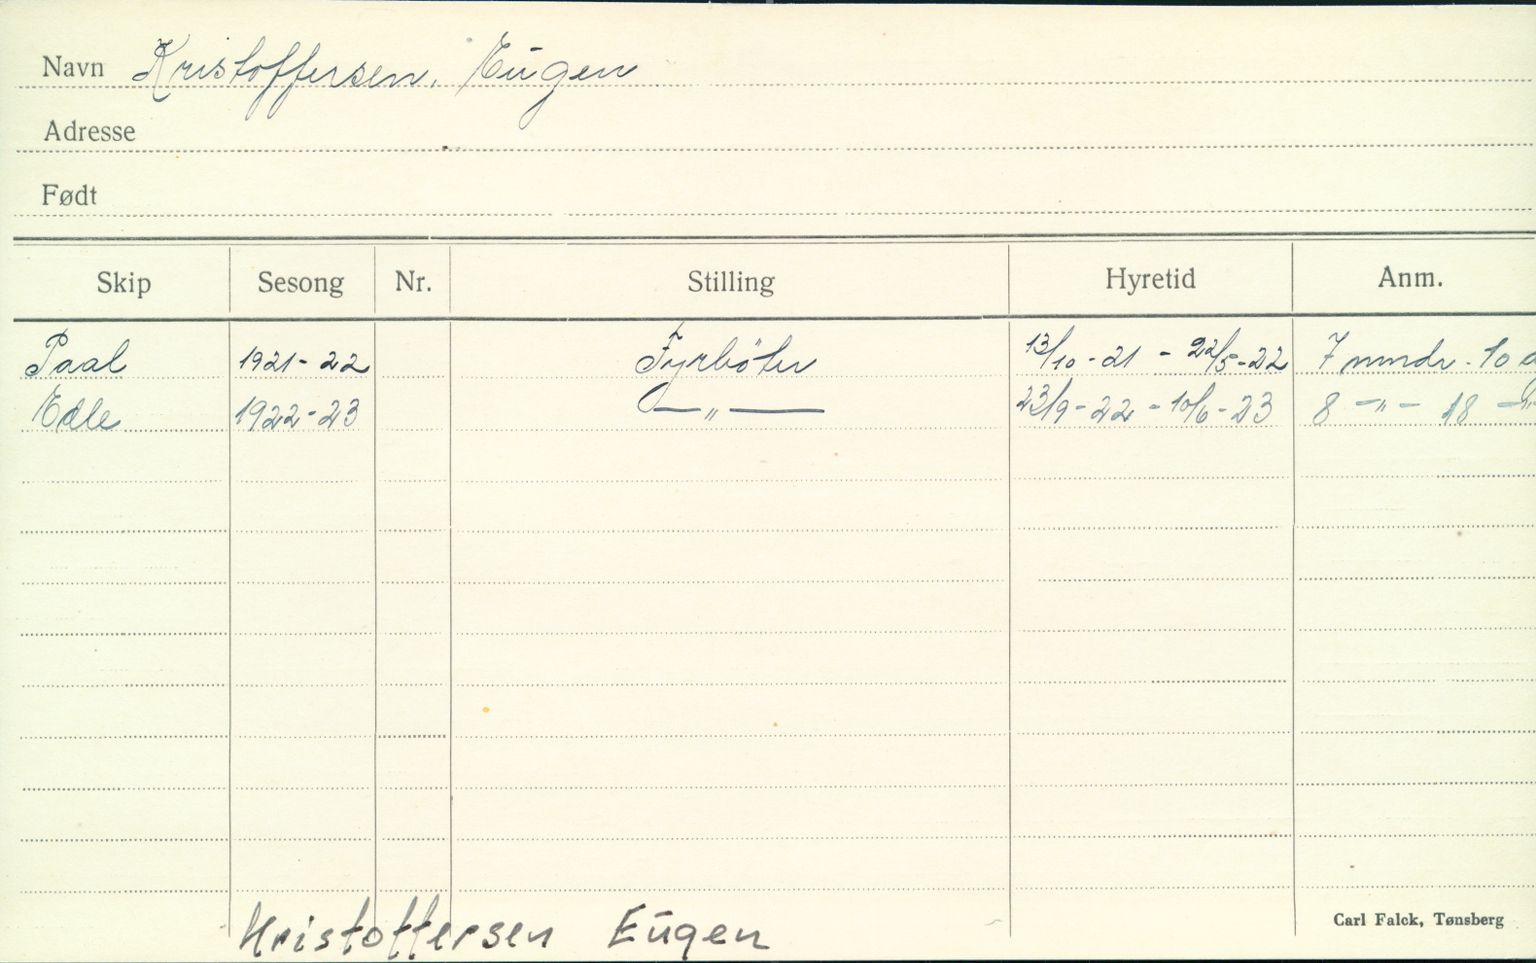 Navn Kristoffersen, Eugen
Adresse
Født
Skip Sesong Nr. Stilling Hyretid Anm.
Paal 1921-22 Fyrböter 13/10-21 - 22/5-22 7 mndr. 10 d
Edle 1922-23 — „ — 23/9-22 - 10/6-23 8 -„- 18 -„-
Kristoffersen Eugen
Carl Falck, Tønsberg